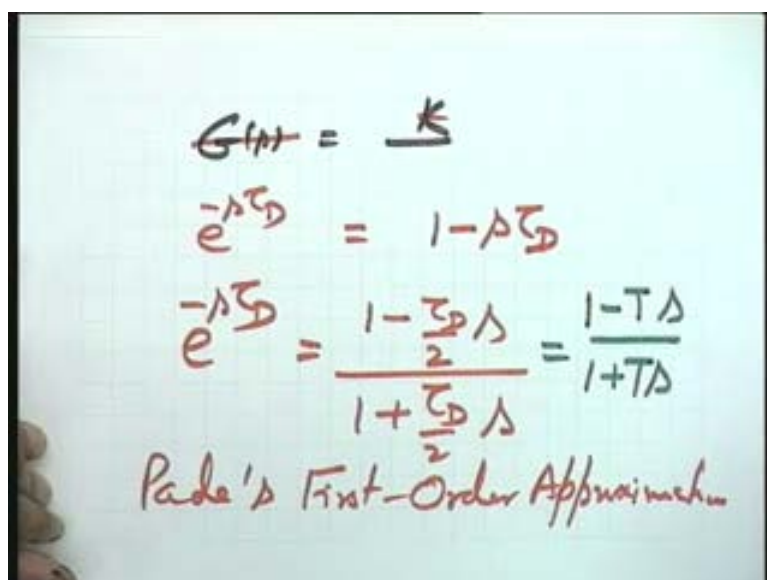 G(s) = K
e^{-sτ_D} = 1 - sτ_D
e^{-sτ_D} = \frac{1 - \frac{τ_D}{2} s}{1 + \frac{τ_D}{2} s} = \frac{1 - Ts}{1 + Ts}
Pade's First-Order Approximation